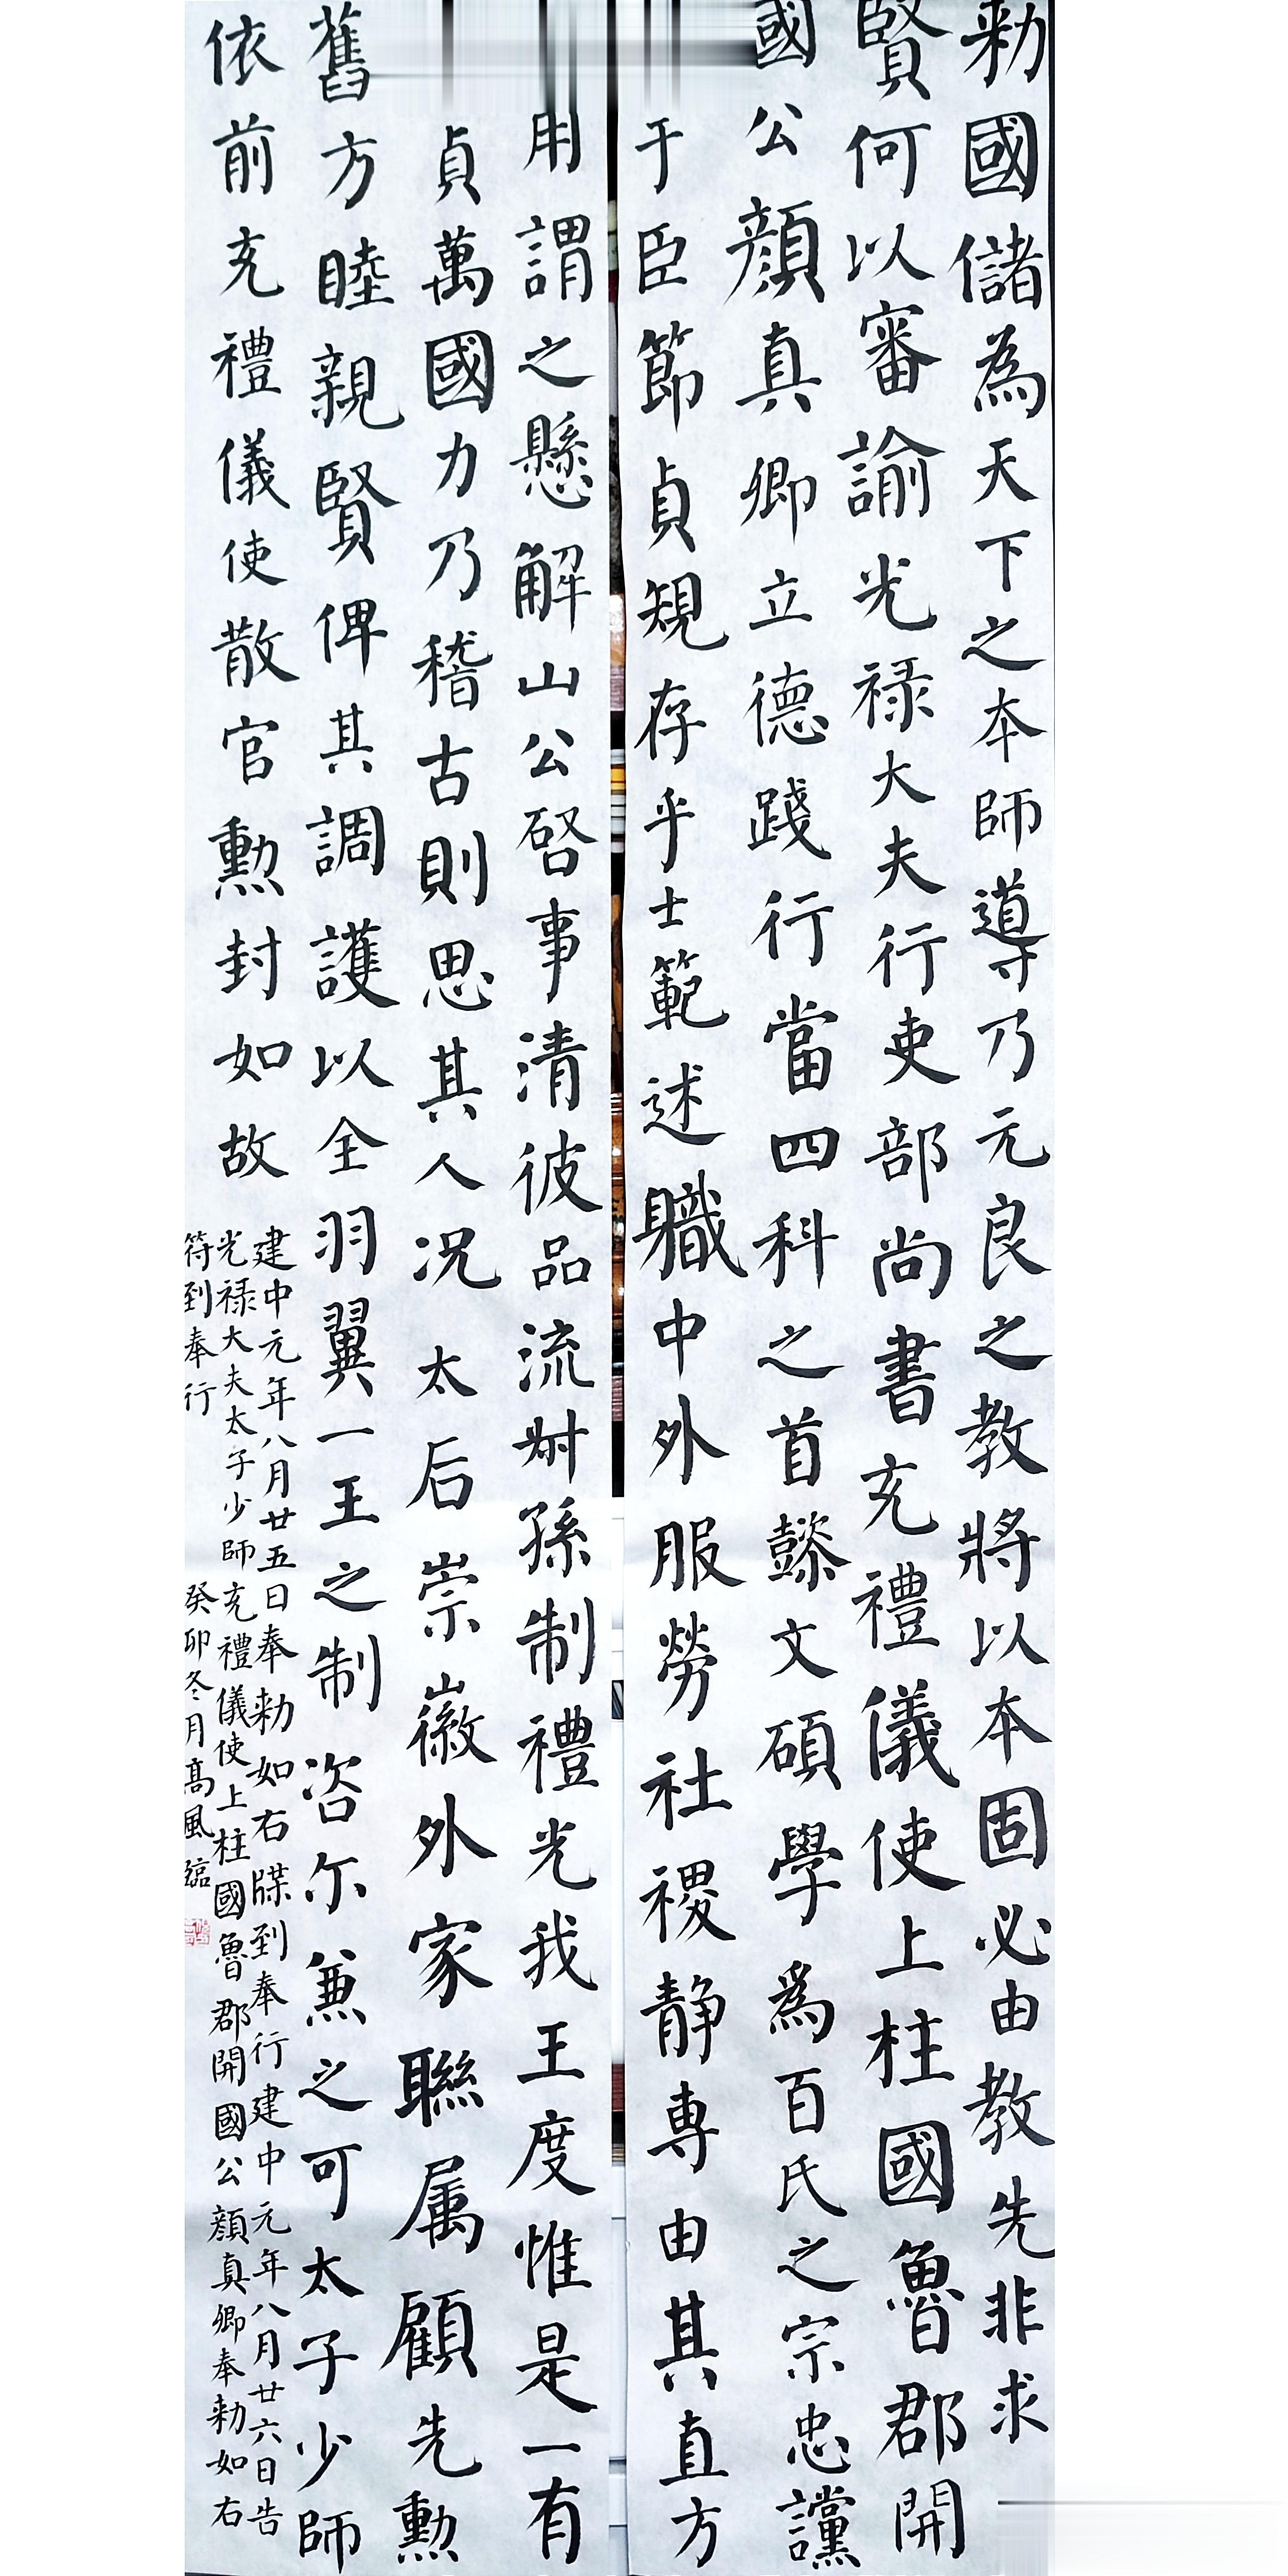 勑國儲為天下之本師導乃元良之教將以本固必由教先非求
賢何以審諭光禄大夫行吏部尚書充禮儀使上柱國魯郡開
國公顔真卿立德踐行當四科之首懿文碩學為百氏之宗忠讜
于臣節貞規存乎士範述職中外服勞社稷静専由其直方
用謂之懸解山公啓事清彼品流叔孫制禮光我王度惟是一有
貞萬國力乃稽古則思其人况太后崇徽外家聯属顧先勲
舊方睦親賢俾其調護以全羽翼一王之制咨尓兼之可太子少師
依前充禮儀使散官勲封如故
建中元年八月廿五日奉勑如右牒到奉行建中元年八月廿六日告
光禄大夫太子少師充禮儀使上柱國魯郡開國公顔真卿奉勑如右
符到奉行
癸卯冬月高風臨